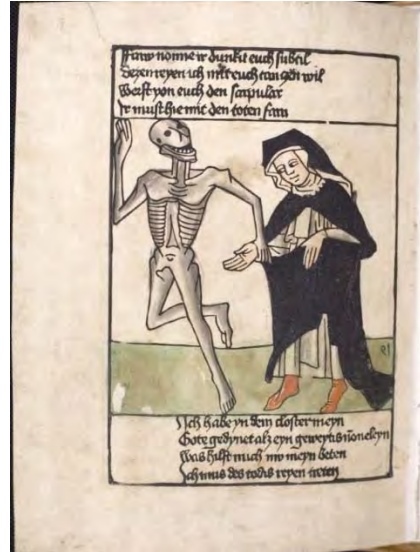 Fraw nonne ir dunkit euch subtil
Dezen reyen ich mit euch tanczen wil
Werft von euch den scapular
Ir must hie mit den toten farn
Ich habe yn dem closter meyn
Gote gedynet alz eyn geweytis noneleyn
Was hilft mich nw meyn beten
Ich mus des todis reyen treten